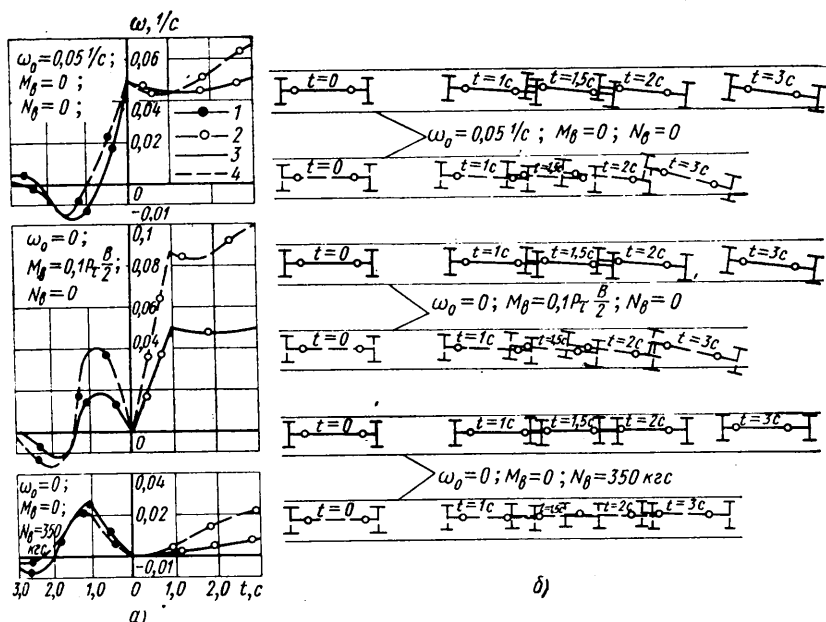 ω, 1/с
ω₀=0,05 1/с;
Mв=0;
Nв=0;
0,06
0,04
0,02
0
-0,01
1
2
3
4
ω₀=0;
Mв=0,1Pτ B/2;
Nв=0
0,1
0,08
0,06
0,04
0
ω₀=0;
Mв=0;
Nв=350 кгс
0,04
0,02
-0,01
3,0 2,0 1,0 0 1,0 2,0 t,с
а)
t=0 t=1с t=1,5с t=2с t=3с
ω₀=0,05 1/с; Mв=0; Nв=0
t=0 t=1с t=1,5с t=2с t=3с
t=0 t=1с t=1,5с t=2с t=3с
ω₀=0; Mв=0,1Pτ B/2; Nв=0
t=0 t=1с t=1,5с t=2с t=3с
t=0 t=1с t=1,5с t=2с t=3с
ω₀=0; Mв=0; Nв=350 кгс
t=0 t=1с t=1,5с t=2с t=3с
б)